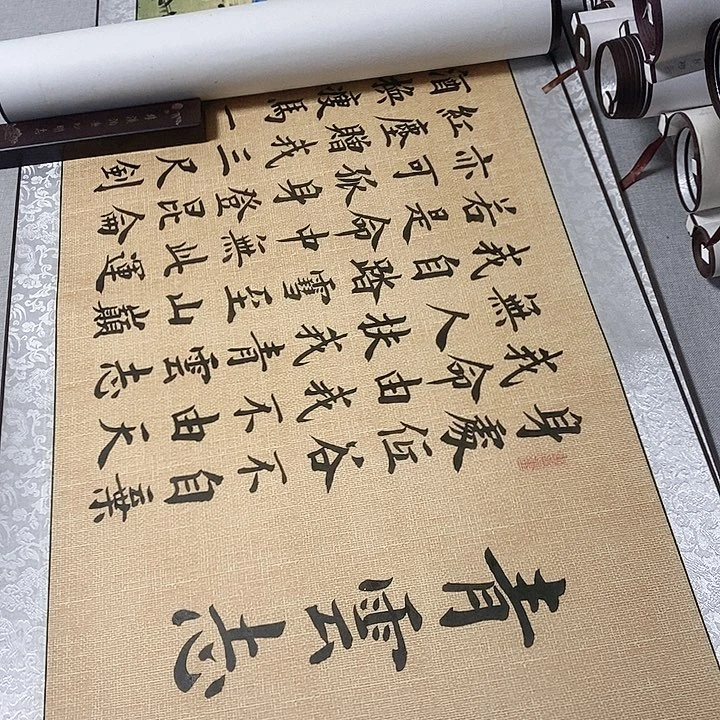 青雲志
身處低谷不自棄
我命由我不由天
無人扶我青雲志
我自踏雪至山巔
若是命中無此運
亦可孤身登昆侖
紅塵贈我三尺劍
酒瘦馬一